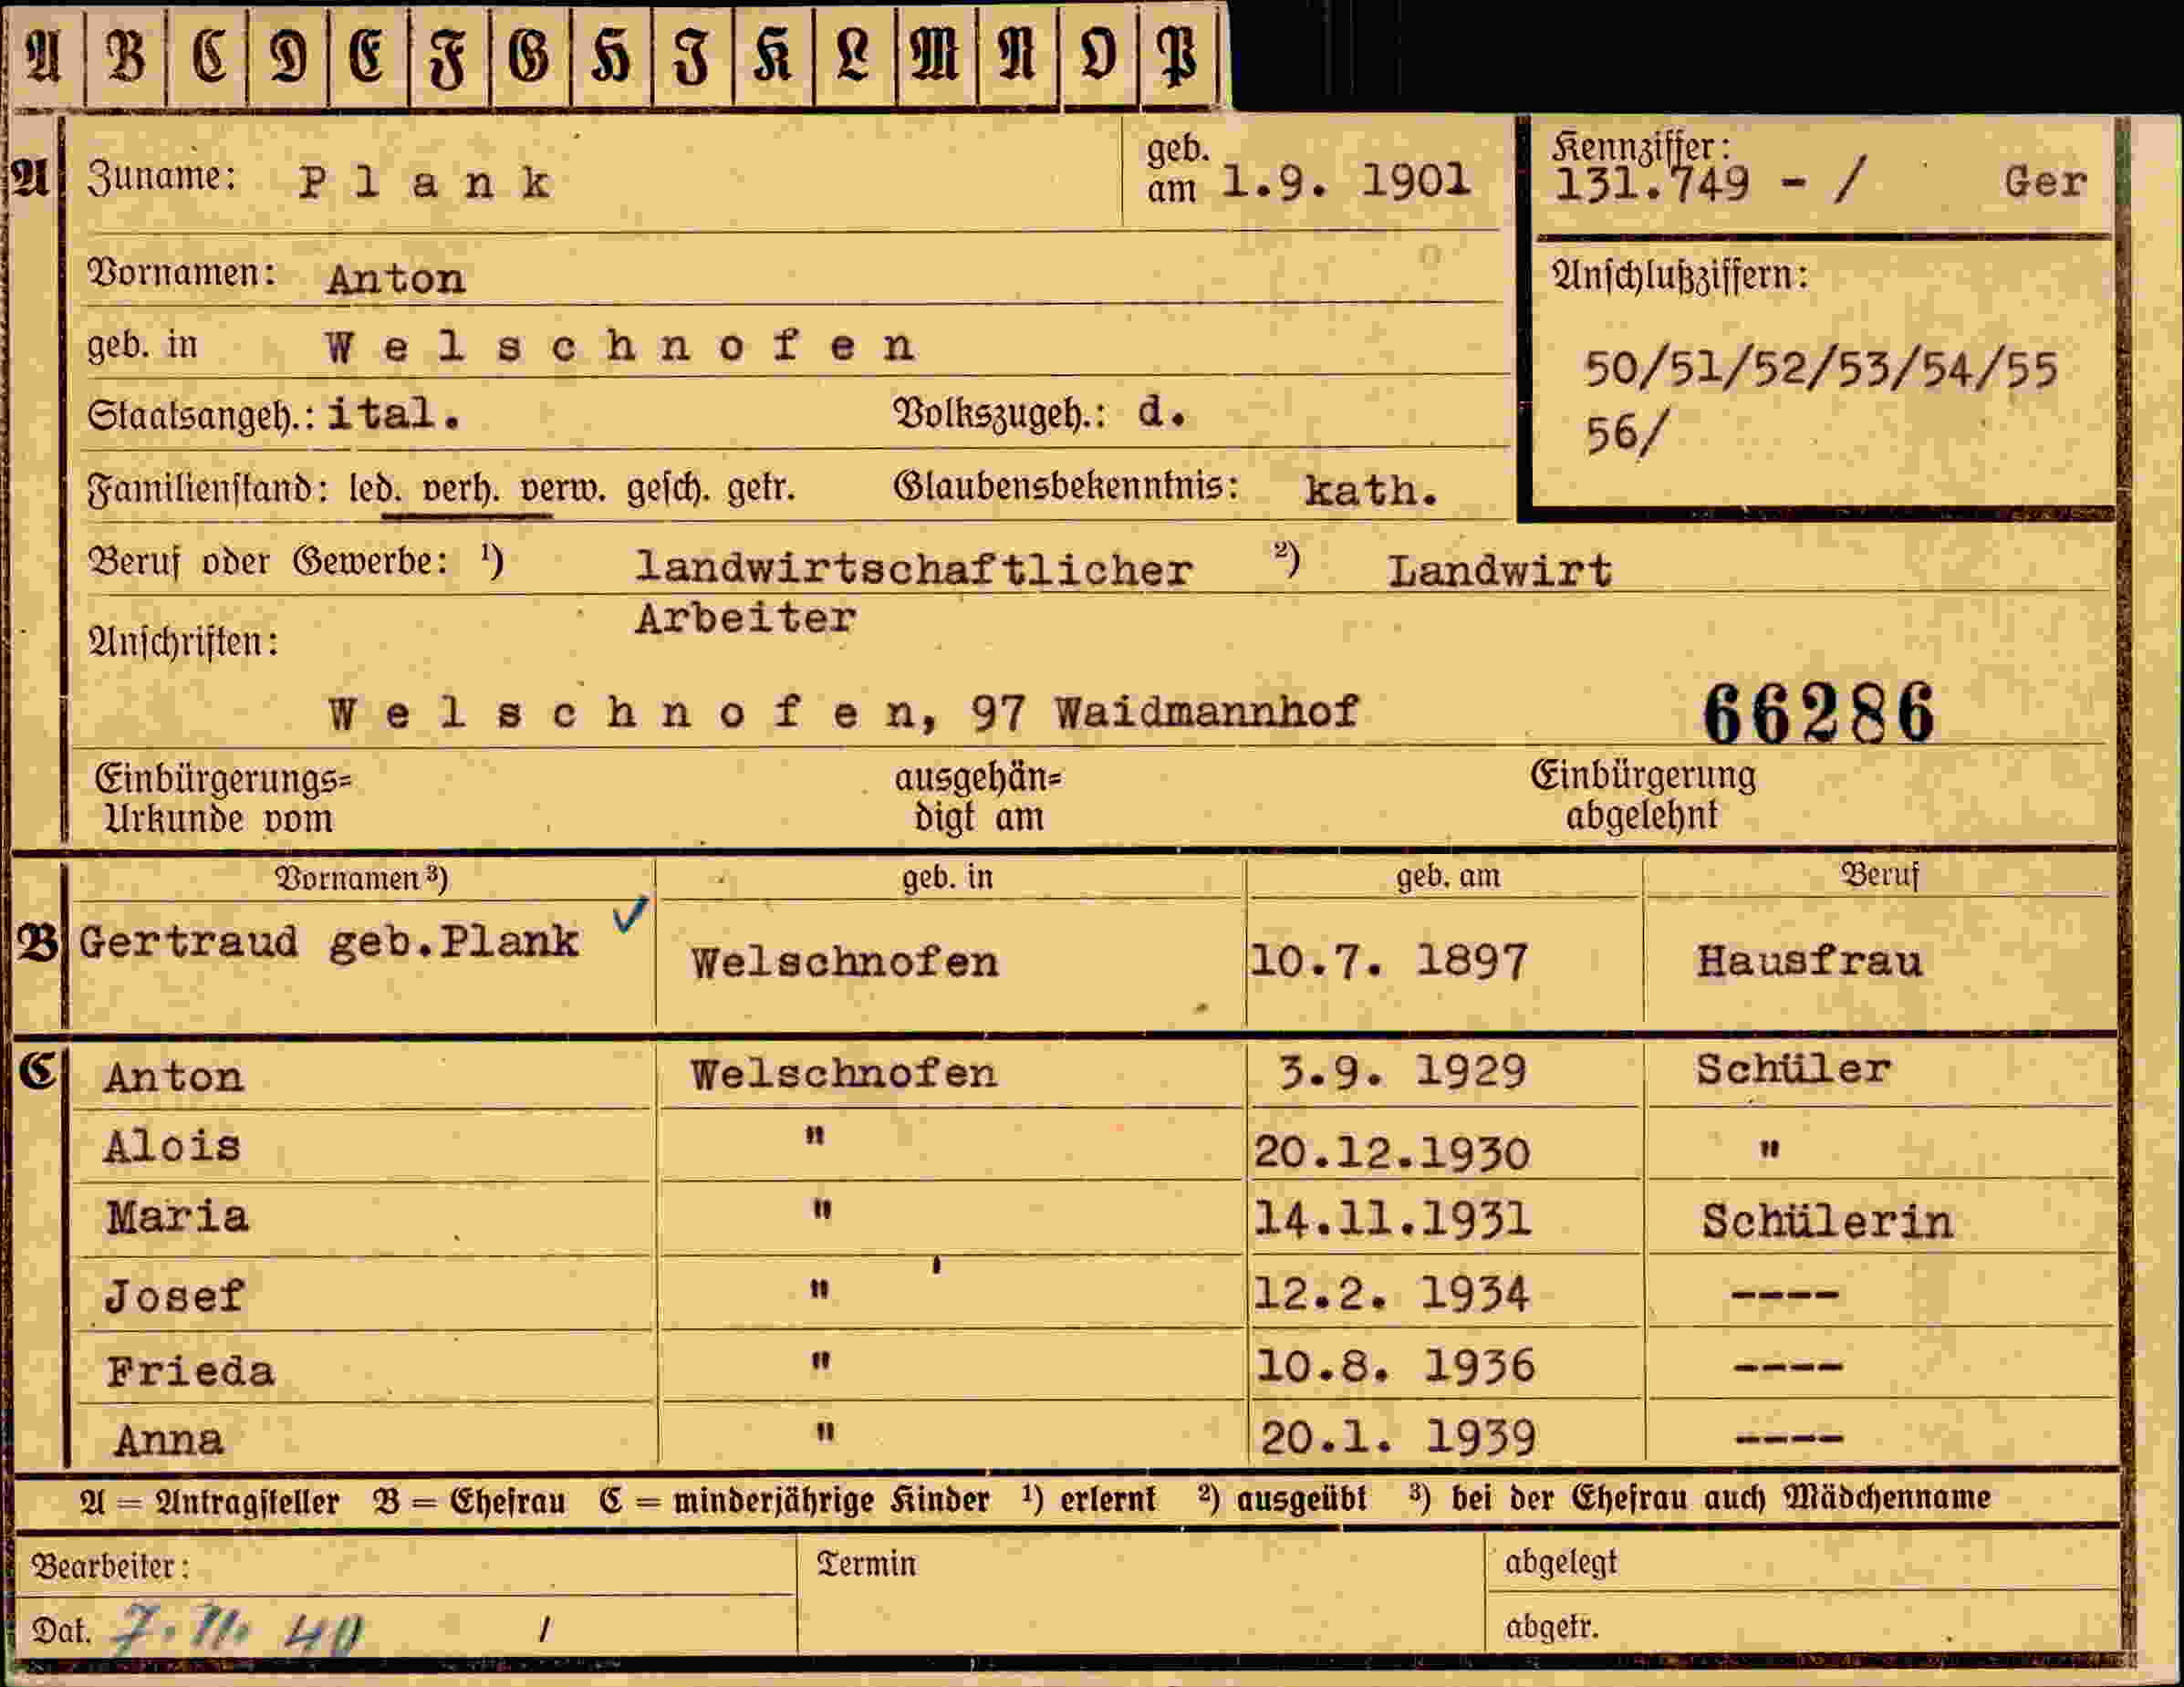 A B C D E F G H J K L M N O P
A Zuname: Plank geb. am 1.9. 1901
Kennziffer: 131.749 - / Ger
Vornamen: Anton
Anschlußziffern:
geb. in Welschnofen
50/51/52/53/54/55
56/
Staatsangeh.: ital. Volkszugeh.: d.
Familienstand: led. verh. verw. gesch. getr. Glaubensbekenntnis: kath.
Beruf oder Gewerbe: ¹) landwirtschaftlicher ²) Landwirt
Arbeiter
Anschriften:
Welschnofen, 97 Waidmannhof 66286
Einbürgerungs= ausgehän= Einbürgerung
Urkunde vom digt am abgelehnt
Vornamen ³) geb. in geb. am Beruf
B Gertraud geb.Plank ✓ Welschnofen 10.7. 1897 Hausfrau
C Anton Welschnofen 3.9. 1929 Schüler
Alois " 20.12.1930 "
Maria " 14.11.1931 Schülerin
Josef " 12.2. 1934 ----
Frieda " 10.8. 1936 ----
Anna " 20.1. 1939 ----
A = Antragsteller B = Ehefrau C = minderjährige Kinder ¹) erlernt ²) ausgeübt ³) bei der Ehefrau auch Mädchenname
Bearbeiter: Termin abgelegt
Dat. 7. 11. 40 / abgetr.